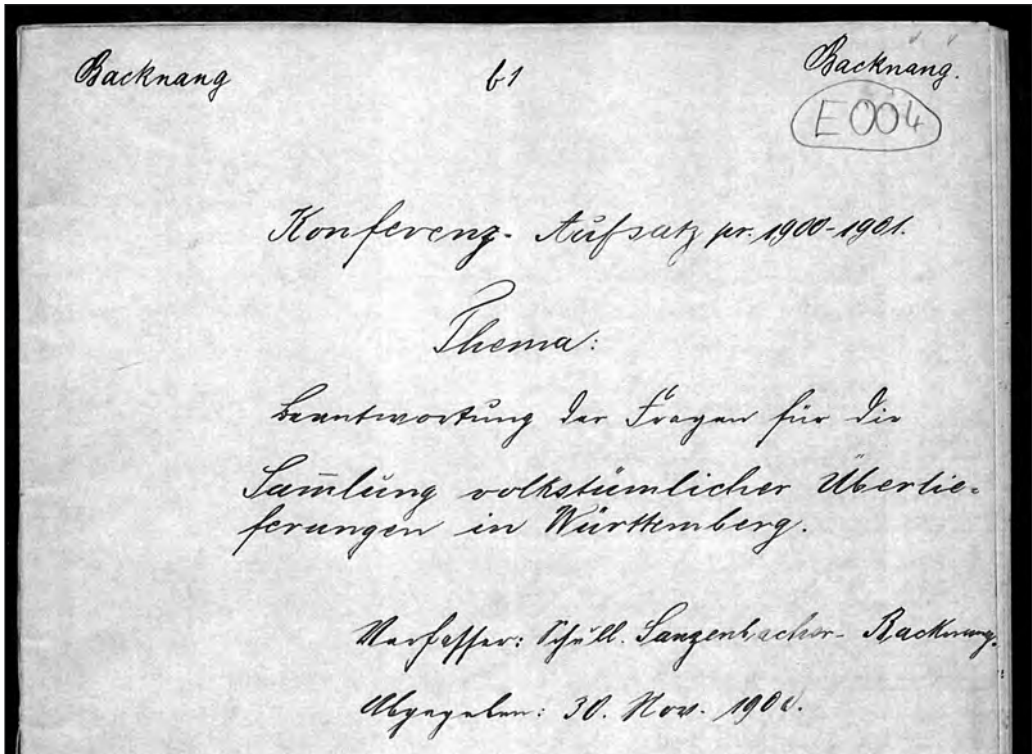 Backnang b1 Backnang.
E004
Konferenz-Aufsatz pr. 1900-1901.
Thema:
Beantwortung der Fragen für die
Sam̄lung volkstümlicher Überlie-
ferungen in Württemberg.
Verfasser: Schull. Sanzenbacher-Backnang.
Abgegeben: 30. Nov. 1900.